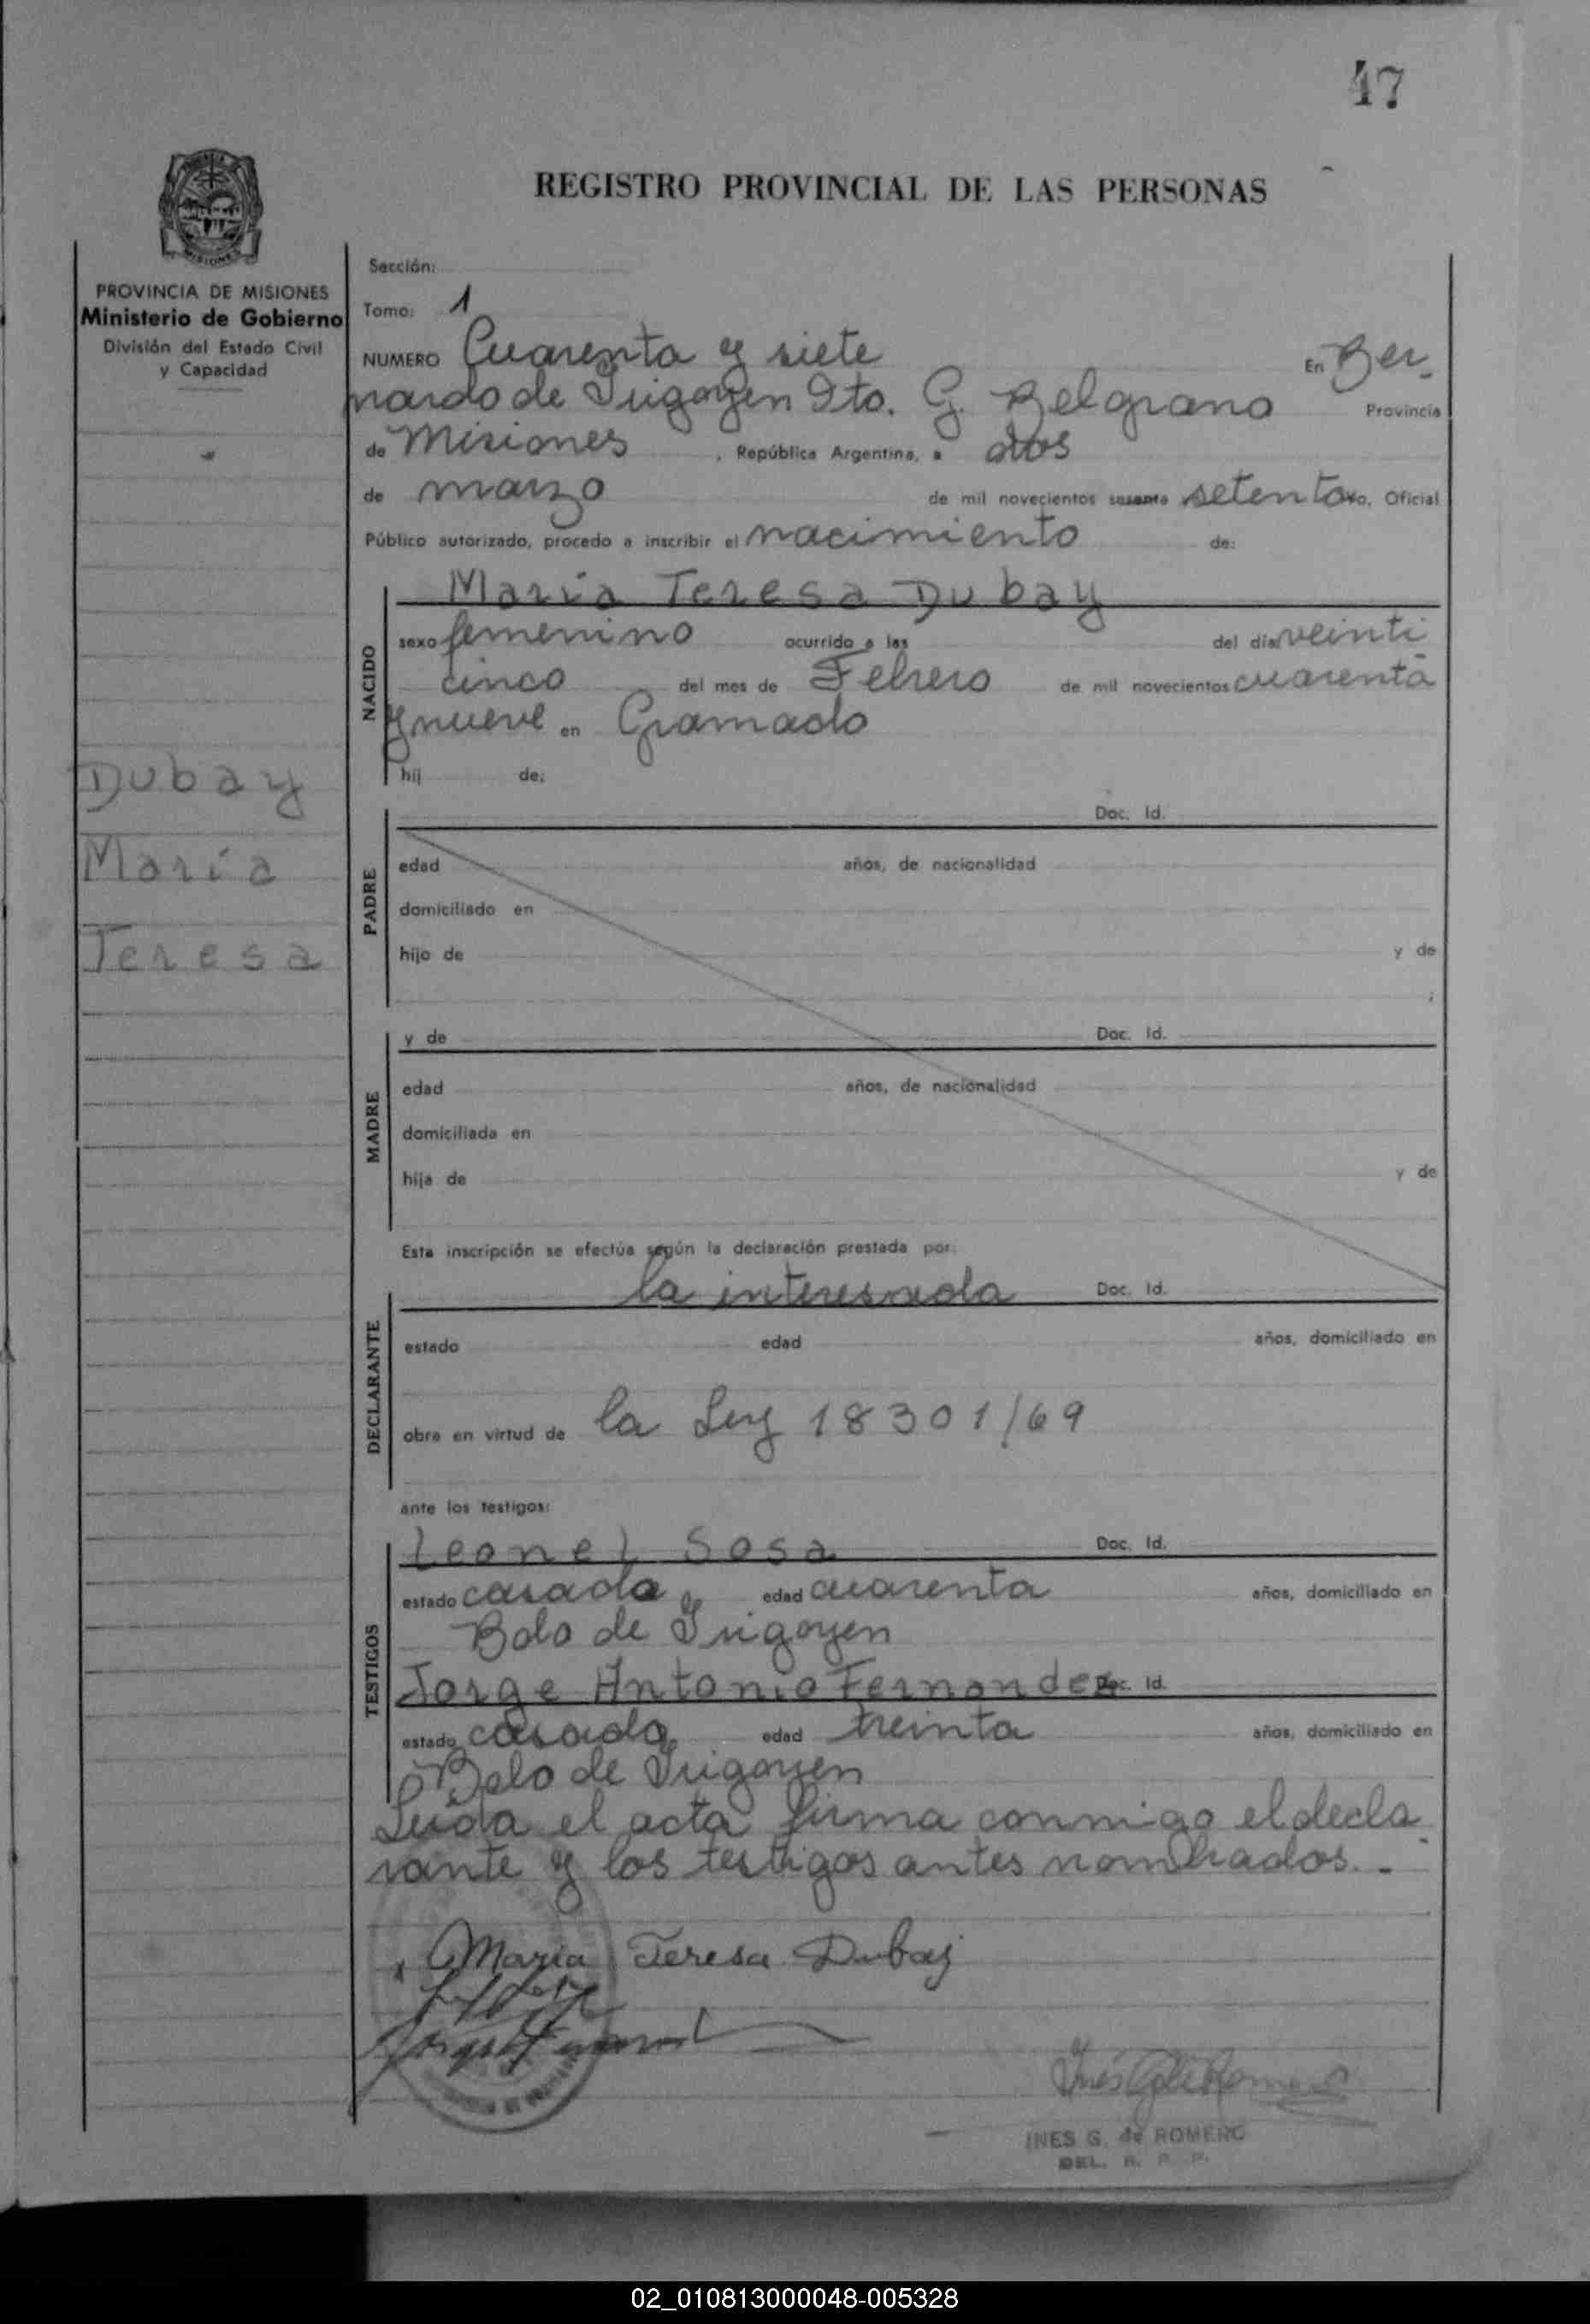 47
REGISTRO PROVINCIAL DE LAS PERSONAS
MISIONES
PROVINCIA DE MISIONES
Ministerio de Gobierno
División del Estado Civil
y Capacidad
Dubay
María
Teresa
Sección:
Tomo: 1
NUMERO Cuarenta y siete En Ber-
nardo de Irigoyen Dto. G. Belgrano Provincia
de Misiones, República Argentina, a dos
de marzo de mil novecientos sesenta setenta yo, Oficial
Público autorizado, procedo a inscribir el nacimiento de:
NACIDO
María Teresa Dubay
sexo femenino ocurrido a las del día veinti
cinco del mes de Febrero de mil novecientos cuarenta
y nueve en Gramado
hij de:
PADRE
Doc. Id.
edad años, de nacionalidad
domiciliado en
hijo de y de
;
MADRE
y de Doc. Id.
edad años, de nacionalidad
domiciliada en
hija de y de
Esta inscripción se efectúa según la declaración prestada por:
DECLARANTE
la interesada Doc. Id.
estado edad años, domiciliado en
obra en virtud de la Ley 18301/69
ante los testigos:
TESTIGOS
Leonel Sosa Doc. Id.
estado casado edad cuarenta años, domiciliado en
Bdo de Irigoyen
Jorge Antonio Fernandez Doc. Id.
estado casado edad treinta años, domiciliado en
Bdo de Irigoyen
Leída el acta firma conmigo el decla
rante y los testigos antes nombrados.-
Maria Teresa Dubaj
INES G. de ROMERO
DEL. R. P. P.
02_010813000048-005328